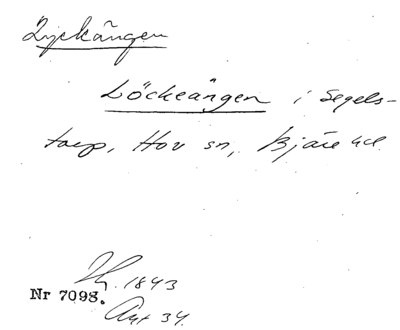 Lyckängen
Löckeängen i Segels-
torp, Hov sn, Bjäre hd.
1843
Nr 7098.
Akt 34.